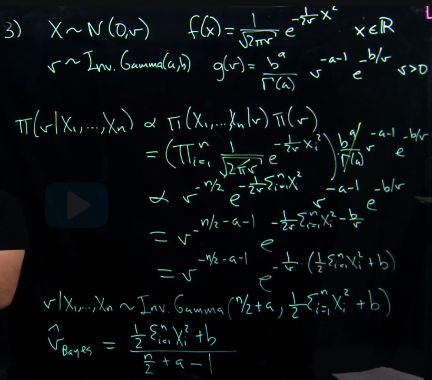 3) X ~ N(0,v) f(x) = 1/√(2πv) e^(-1/(2v) x²) x∈ℝ
v ~ Inv. Gamma(a,b) g(v) = b^a/Γ(a) v^(-a-1) e^(-b/v) v>0
π(v|X₁,...,Xₙ) ∝ π(X₁,...,Xₙ|v) π(v)
= (∏ᵢ₌₁ⁿ 1/√(2πv) e^(-1/(2v) Xᵢ²)) b^a/Γ(a) v^(-a-1) e^(-b/v)
∝ v^(-n/2) e^(-1/(2v) Σᵢ₌₁ⁿ Xᵢ²) v^(-a-1) e^(-b/v)
= v^(-n/2-a-1) e^(-1/(2v) Σᵢ₌₁ⁿ Xᵢ² - b/v)
= v^(-n/2-a-1) e^(-1/v · (1/2 Σᵢ₌₁ⁿ Xᵢ² + b))
v|X₁,...,Xₙ ~ Inv. Gamma(n/2+a, 1/2 Σᵢ₌₁ⁿ Xᵢ² + b)
v̂_Bayes = (1/2 Σᵢ₌₁ⁿ Xᵢ² + b)/(n/2 + a - 1)